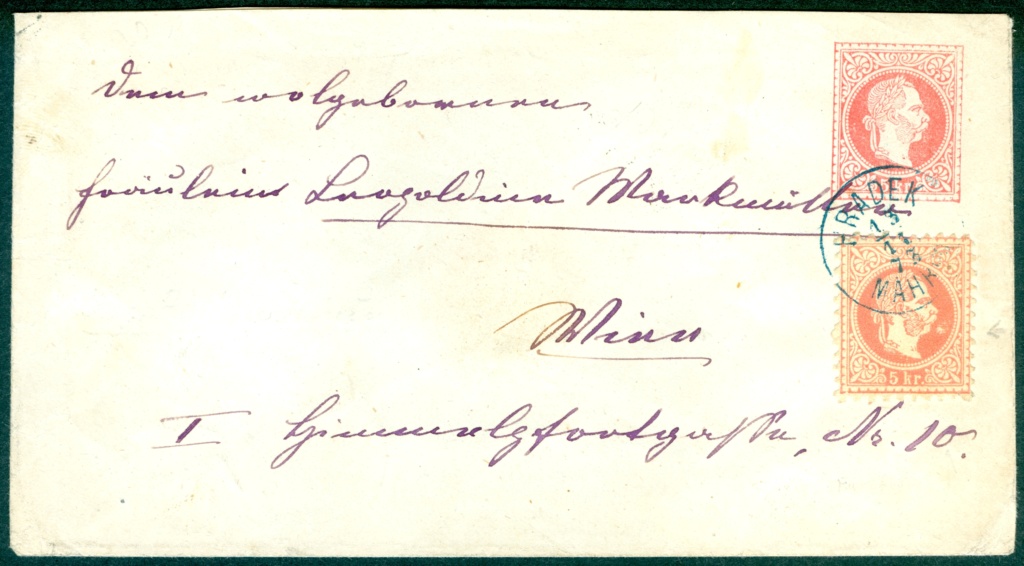 Dem wolgebornen
Fräulein Leopoldine Markmüller
Wien
I Himmelpfortgasse, Nr. 10.
HRADEK
MÄHR
5 kr.